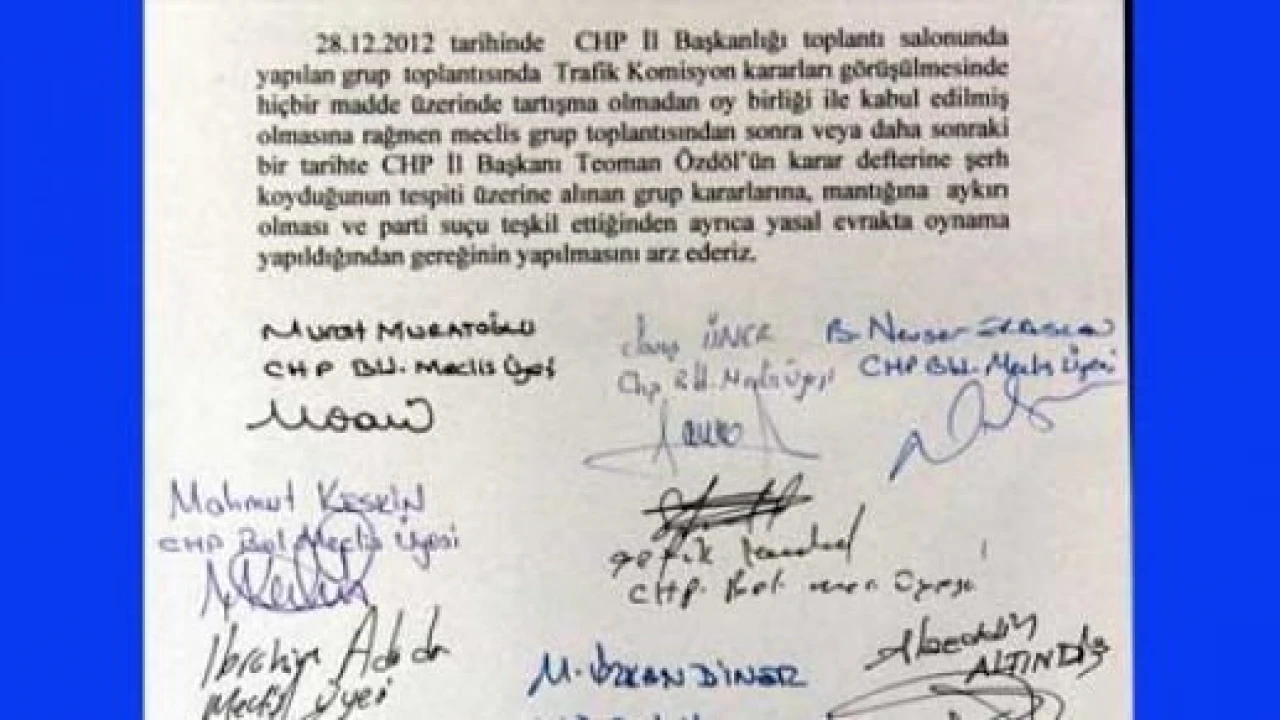 28.12.2012 tarihinde CHP İl Başkanlığı toplantı salonunda
yapılan grup toplantısında Trafik Komisyon kararları görüşülmesinde
hiçbir madde üzerinde tartışma olmadan oy birliği ile kabul edilmiş
olmasına rağmen meclis grup toplantısından sonra veya daha sonraki
bir tarihte CHP İl Başkanı Teoman Özdöl'ün karar defterine şerh
koyduğunun tespiti üzerine alınan grup kararlarına, mantığına aykırı
olması ve parti suçu teşkil ettiğinden ayrıca yasal evrakta oynama
yapıldığından gereğinin yapılmasını arz ederiz.
Murat MURATOĞLU
CHP Bld. Meclis Üyesi
ÜNER
CHP Bld. Meclis Üyesi
B. Nevser
CHP Bld. Meclis Üyesi
Mahmut KESKİN
CHP Bel Meclis Üyesi
Şefik
CHP. Bel. Üyesi
İbrahim
Meclis Üyesi
M. ÖZKAN DİNER
Alaeddin
ALTINDİŞ